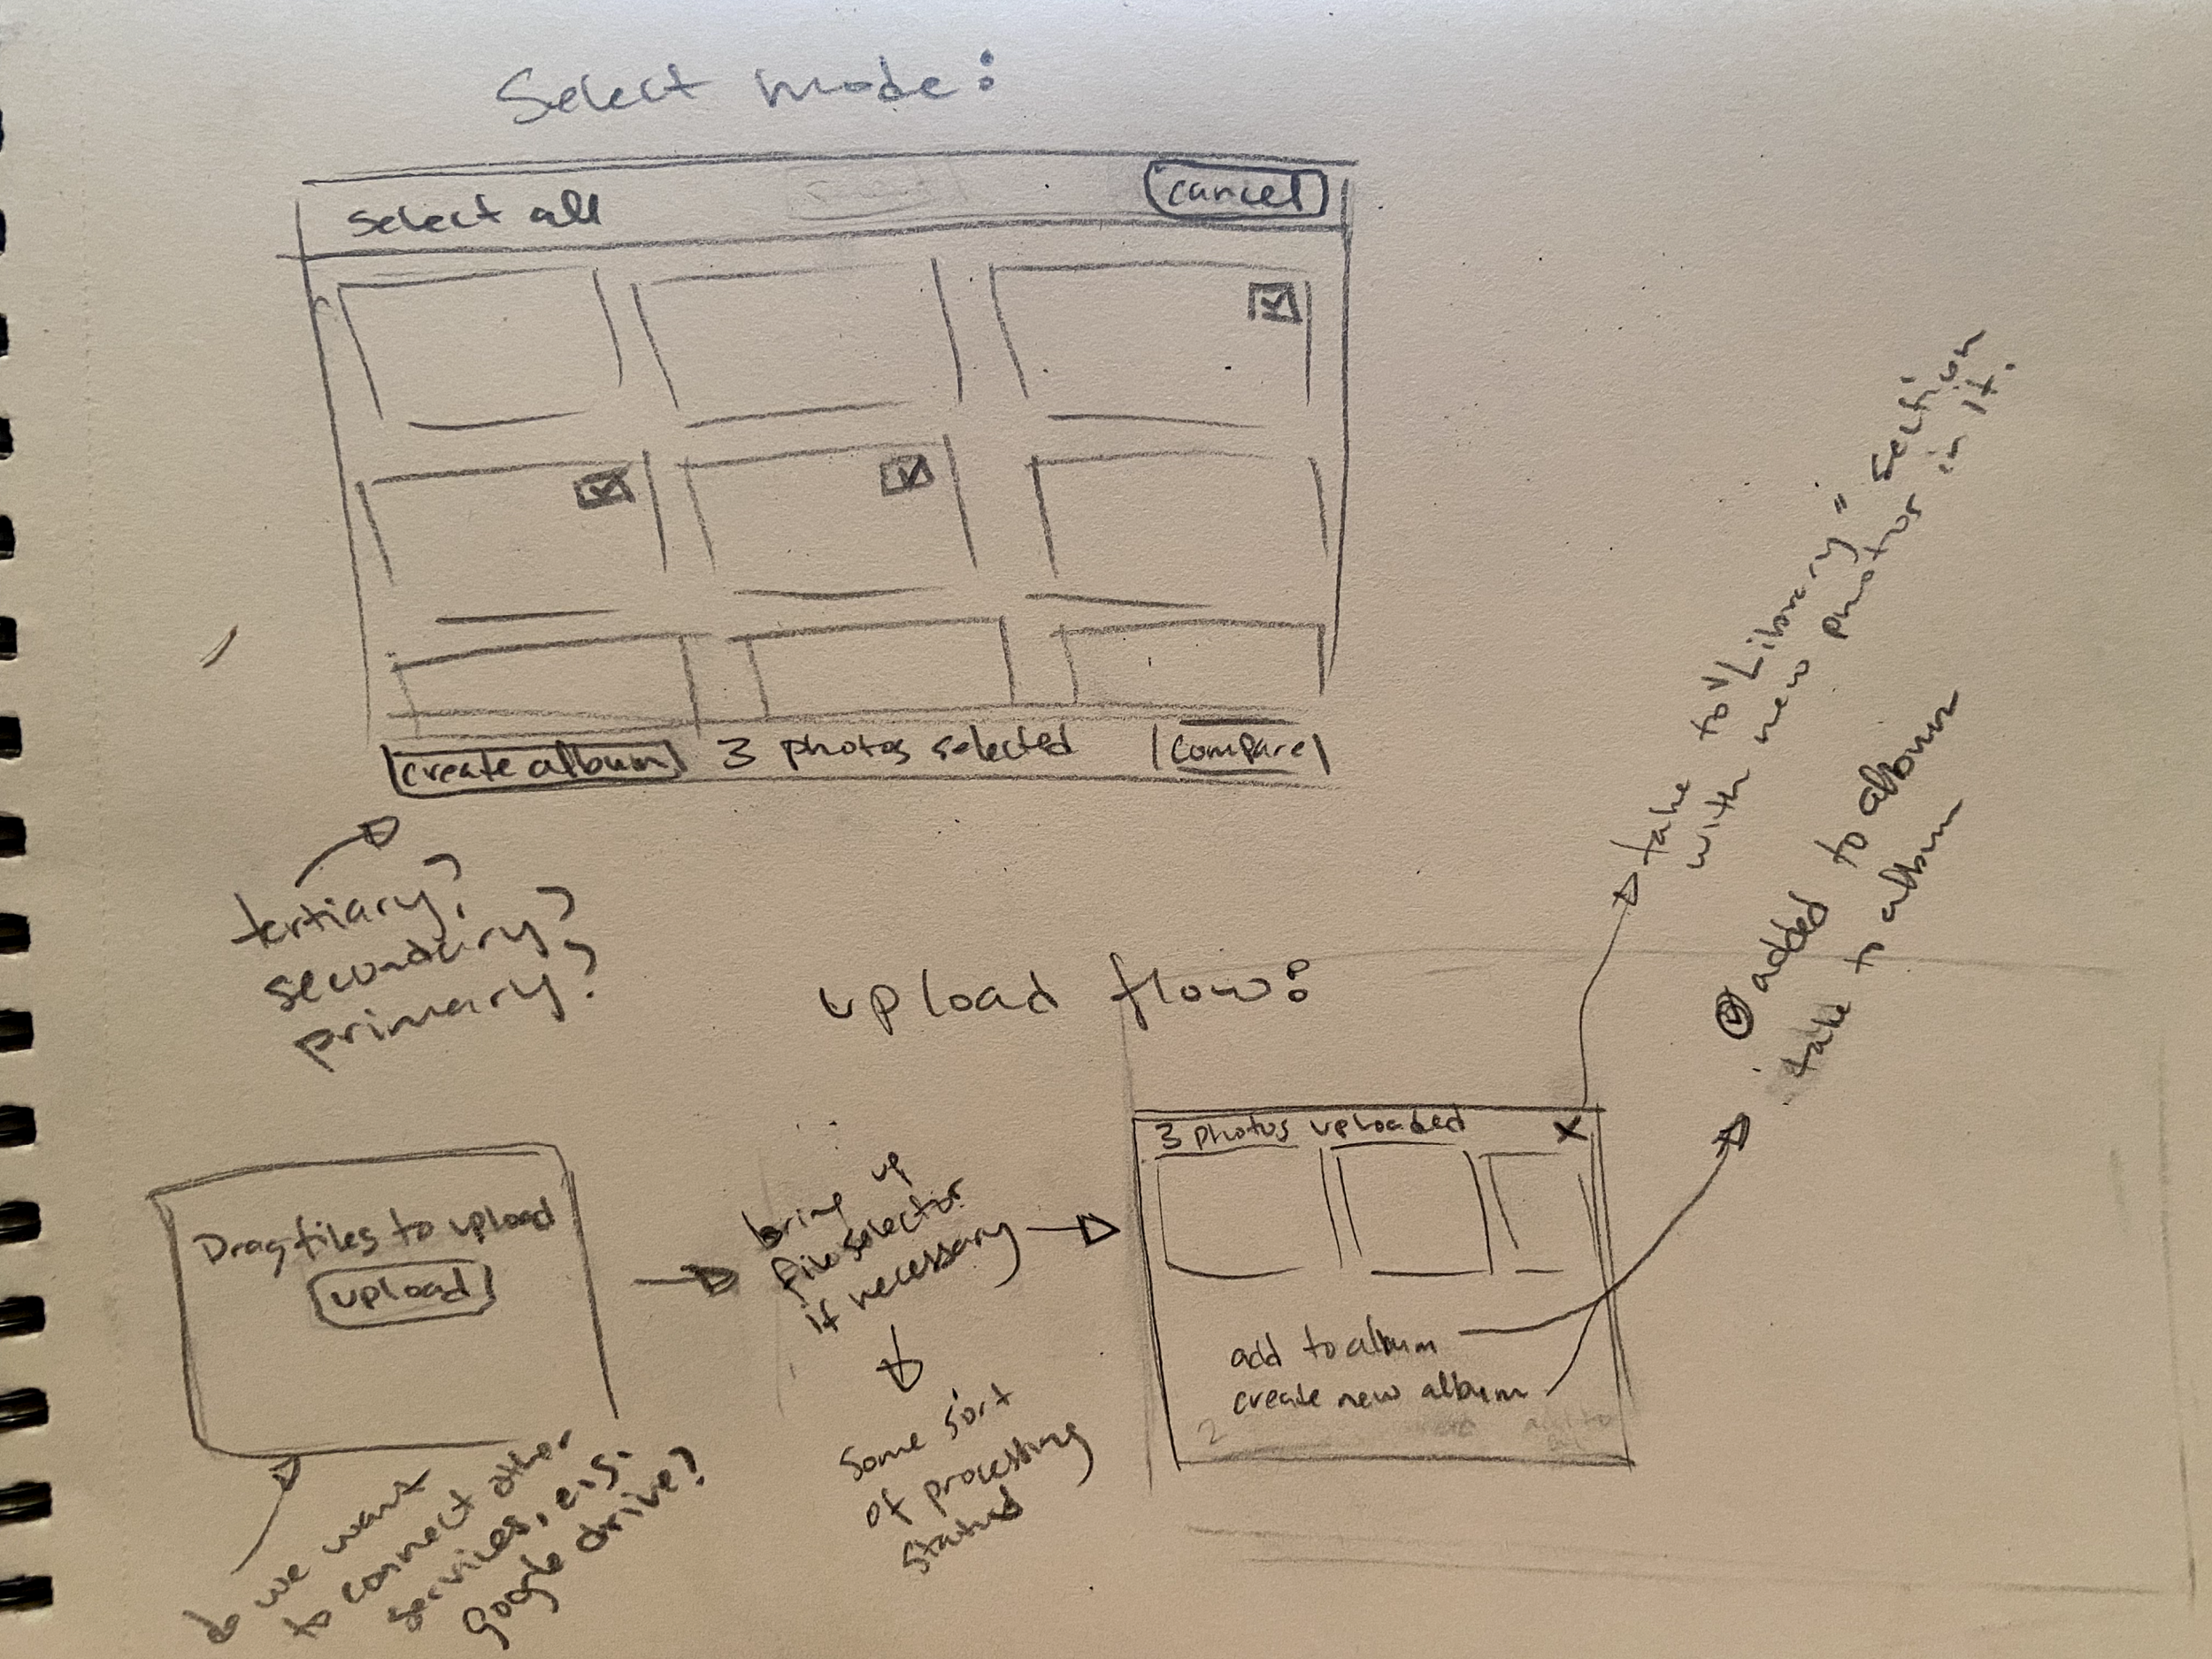 Select mode:
select all
cancel
create album
3 photos selected
compare
tertiary?
secondary?
primary?
upload flow:
take to "Library" section
with new photos in it.
added to album
take to album
Drag files to upload
upload
bring up
file selector
if necessary
some sort
of processing
status
3 photos uploaded
X
add to album
create new album
do we want
to connect other
services, e.g.
google drive?